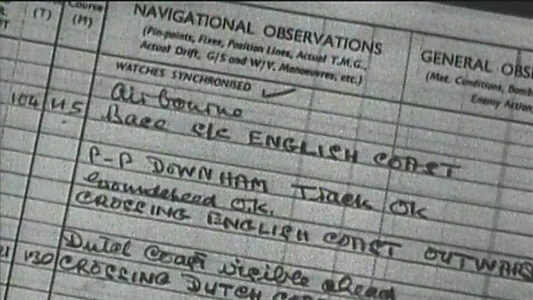 Course
(T) (M)
NAVIGATIONAL OBSERVATIONS
(Pin-points, Fixes, Position Lines, Actual T.M.G.,
Actual Drift, G/S and W/V, Manoeuvres, etc.)
GENERAL OBS
(Met. Conditions, Bomb
Enemy Action
WATCHES SYNCHRONISED ✓
Airbourne
104 115 Base c/c ENGLISH COAST
P-P DOWNHAM Track OK
Groundspeed O.K.
CROSSING ENGLISH COAST OUTWARD
Dutch Coast visible ahead
130 CROSSING DUTCH